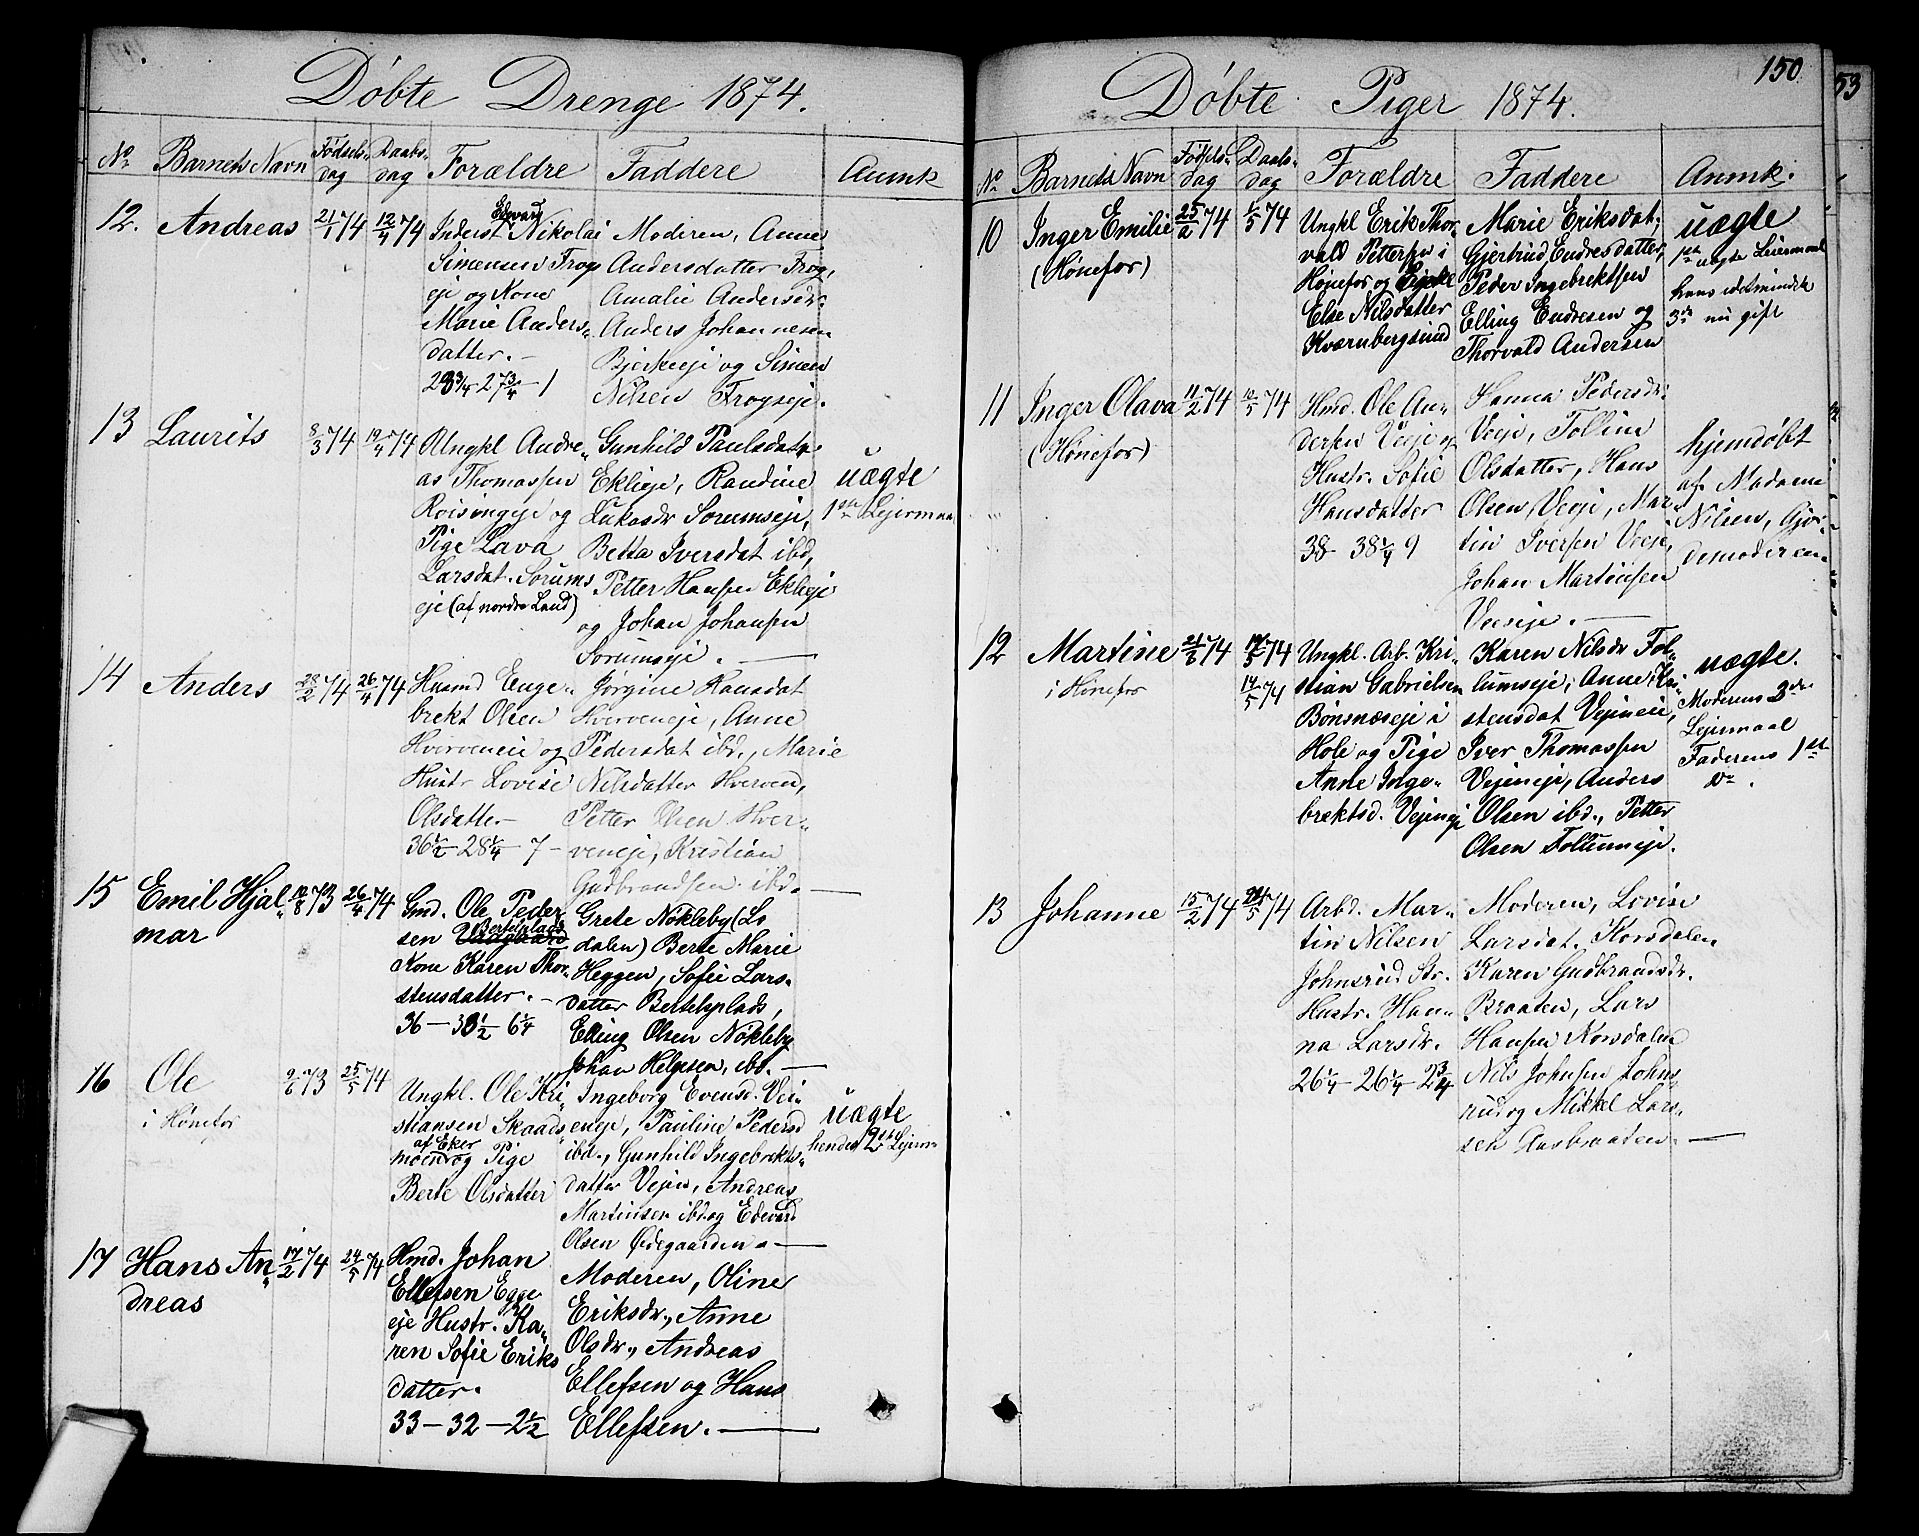 Döbte Drenge 1874.
No Barnets Navn Fødsels- dag Daabs- dag Forældre Faddere Anmk
12. Andreas 21/1 74 12/4 74
Inderst Edvard Nikolai
Simensen Frog
eje og Kone
Marie Anders-
datter.-
28 3/4 - 27 3/4 - 1
Moderen, Anne
Andersdatter Frog,
Amalie Andersdr.
Anders Johannesen
Bjerkeeje og Simen
Nilsen Frogseje.
13 Laurits 8/3 74 19/4 74
Ungkl Andre-
as Thomassen
Roisingeje og
Pige Lava
Larsdat. Sorums
eje (af nordre Land)
Gunhild Paulsdatr
Eklieje, Randine
Lukasdr Sorumseje,
Betta Iversdat ibd,
Petter Hansen Eklieje
og Johan Johansen
Sorumseje.
uægte
1ste Lejermaal
14 Anders 28/2 74 26/4 74
Husmd Enge-
brekt Olsen
Hverveneie og
Hustr Lovise
Olsdatter-
36 1/2 - 28 1/4 - 7-
Jørgine Hansdat
Hverveneje, Anne
Pedersdat ibd., Marie
Nilsdatter Hverven,
Petter Olsen Hver-
veneje, Kristian
Gudbrandsen ibd.
15 Emil Hjal-
mar 12/8 73 26/4 74
Gmd. Ole Peder
sen Bertelplads
Kone Karen Thor-
stensdatter.-
36 - 38 1/2 6 1/4
Grete Nökleby (Lo
dalen) Berte Marie
Heggen, Sofie Lars-
datter Bertelsplads,
Elling Olsen Nökleby
Johan Helgesen, ibd.
16 Ole 9/6 73 25/5 74
i Hönefos
Ungkl. Ole Kri-
stiansen Skaads
af Eker
moen og Pige
Berte Olsdatter
Ingeborg Evensd. Vei-
eneje, Pauline Pedersd
ibd., Gunhild Ingebrekts-
datter Vejen, Andreas
Martinsen ibd og Edevard
Olsen Ødegaarden.-
uægte
hendes 2det Lejerm
17 Hans An-
dreas 17/2 74 24/5 74
Hmd. Johan
Ellefsen Egge-
eje Hustr. Ka-
ren Sofie Eriks
datter.
33 - 32 - 2 1/2
Moderen, Oline
Eriksdr., Anne
Olsdr., Andreas
Ellefsen og Hans
Ellefsen.
150
53
Döbte Piger 1874.
No Barnets Navn Födsels- dag Daabs- dag Forældre Faddere Anmk.
10 Inger Emilie 25/2 74 1/5 74
(Hönefos)
Ungkl Erik Thor-
vald Pettersen i
Hönefos og Pige
Else Nilsdatter
Kværnbergsund
Marie Eriksdat,
Gjertrud Endresdatter,
Peder Ingebrektsen
Elling Endresen og
Thorvald Andersen
uægte
1ste uægte Leiermaal
hans idetmindste
3die nu gift
11 Inger Olava 11/2 74 10/5 74
(Hönefos)
Hmd. Ole An-
dersen Veeje og
Hustr. Sofie
Hansdatter
38 - 38 1/4 9
Hanna Pedersdr.
Veeje, Tolline
Olsdatter, Hans
Olsen Veeje, Mar-
tin Iversen Veeje,
Johan Martinsen
Veeseje.
hjemdöbt
af Madame
Nilsen, Gjor-
demoderen
12 Martine 21/3 74 14/5 74
i Hönefos 14/5 74
Ungkl. Arb. Kri-
stian Gabrielsen
Bönsnæseje i
Hole og Pige
Anne Inge-
brektsd. Vejeneje
Karen Nilsdr Fol-
lumseje, Anne Kri-
stensdat Vejeneie,
Iver Thomassen
Vejeneje, Anders
Olsen ibd., Petter
Olsen Follumeje.
uægte.
Moderens 3die
Lejermaal
Faderens 1ste
Do.
13 Johanne 15/2 74 24/5 74
Arbd. Mar-
tin Nilsen
Johnsrud Br.
Hustr. Han-
na Larsdr.
26 1/4 - 26 1/4 - 2 3/4
Moderen, Lovise
Larsdat. Korsdalen
Karen Gudbrandsdr.
Braaten, Lars
Hansen Korsdalen
Nils Johnsen Johns-
rud og Mikkel Lars-
sen Aasbraaten.